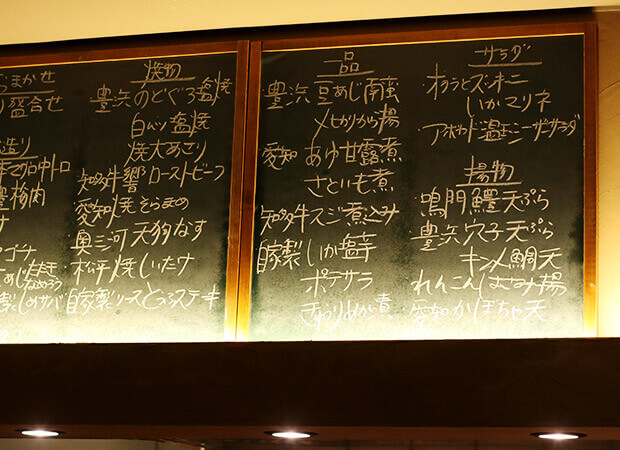 おまかせ
り盛合せ
造り
梅肉
アゴサ
なめろう
しめサバ
焼物
豊浜のどぐろ塩焼
白ムツ塩焼
焼大あさり
知多牛響ローストビーフ
愛知焼そらまめ
奥三河天狗なす
松平焼しいたけ
自家製ソースとろろステーキ
一品
豊浜豆あじ南蛮
メヒカリから揚
愛知あゆ甘露煮
さといも煮
知多牛スジ煮込み
自家製いか塩辛
ポテサラ
きゅうりぬか漬
サラダ
オクラとズッキーニ
いかマリネ
アボカド温玉シーザーサラダ
揚物
鳴門鱧天ぷら
豊浜穴子天ぷら
キンメ鯛天
れんこんはさみ揚
愛知かぼちゃ天